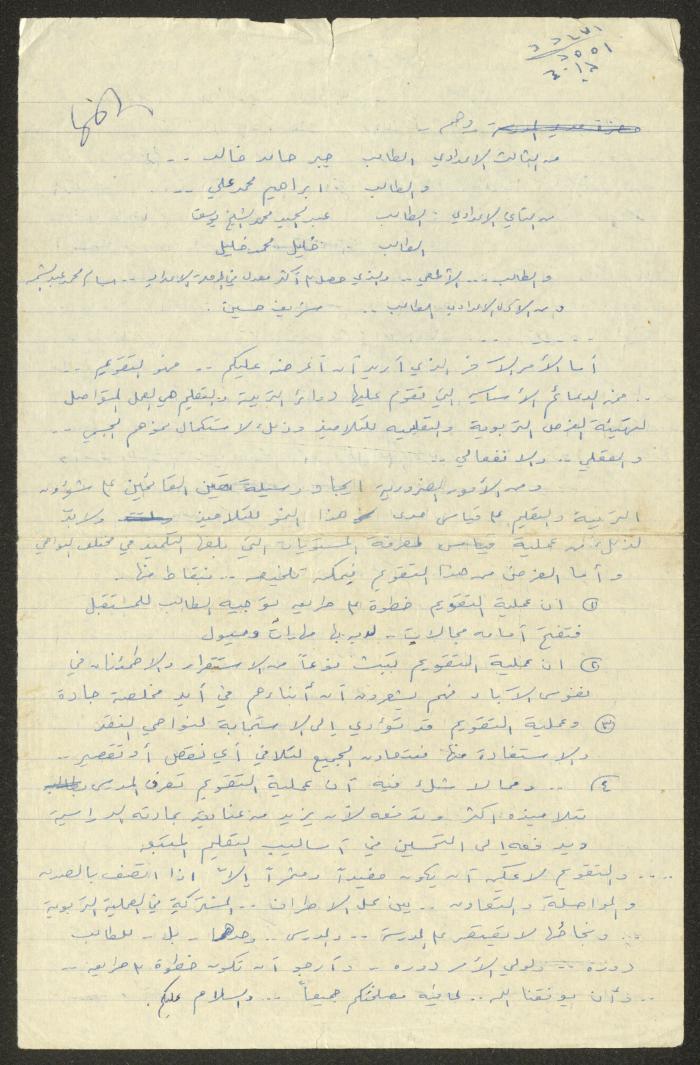 وهم ..
من الثالث الاعدادي الطالب جبر حامد خالد ...
والطالب ابراهيم محمد علي ...
من الثاني الاعدادي الطالب عبد المجيد محمد الشيخ يوسف
الطالب خليل محمد خليل
والطالب ... الألمعي .. والذي حصل على أكثر معدل في المرحلة الاعدادية .. بسام محمد عبد
ومن الأول الاعدادي الطالب .. شريف حسين .
أما الأمر الآخر الذي أريد أن أعرضه عليكم .. فهو التقويم ..
.. فمن الدعائم الأساسية التي تقوم عليها دوائر التربية والتعليم هي العمل المتواصل
لتهيئة الفرص التربوية والتعليمية للتلاميذ وذلك لاستكمال نموهم الجسمي ..
والعقلي .. والانفعالي ..
ومن الأمور الضرورية ايجاد وسيلة القائمين على شؤون
التربية والتعليم على قياس مدى هذا النمو للتلاميذ ولابد
لذلك من عملية قياس لمعرفة المستويات التي بلغها التلميذ في مختلف النواحي
وأما الغرض من هذا التقويم فيمكن تلخيصه .. بنقاط منها ..
① ان عملية التقويم خطوة على طريق توجيه الطالب للمستقبل
فتفتح أمامه مجالات .. لديه بها مهارات وميول
② ان عملية التقويم تبث نوعاً من الاستقرار والاطمئنان في
نفوس الآباء فهم يشعرون أن أبناءهم في أيد مخلصة جادة
③ وعملية التقويم قد تؤدي إلى الاستجابة لنواحي النقد
والاستفادة منها فيتعاون الجميع لتلافي أي نقص أو تقصير ..
④ .. ومما لا شك فيه أن عملية التقويم تعرف المدرس
بتلاميذه اكثر وتدفعه لأن يزيد من عنايته بمادته الدراسية
ويدفعه إلى التحسين في أساليب التعليم المتبعة
.... والتقويم لا يمكن أن يكون مفيداً ومثمراً إلا اذا اتصف بالصدق
والمواصلة والتعاون .. بين كل الاطراف .. المشتركة في العملية التربوية
... ونجاحها لا يقتصر على المدرسة .. والمدرس .. وحدهما .. بل .. للطالب
دوره .. ولولي الأمر دوره .. وأرجو أن تكون خطوة على طريق ..
.. وأن يوفقنا الله .. لما فيه مصلحتكم جميعاً .. والسلام عليكم .